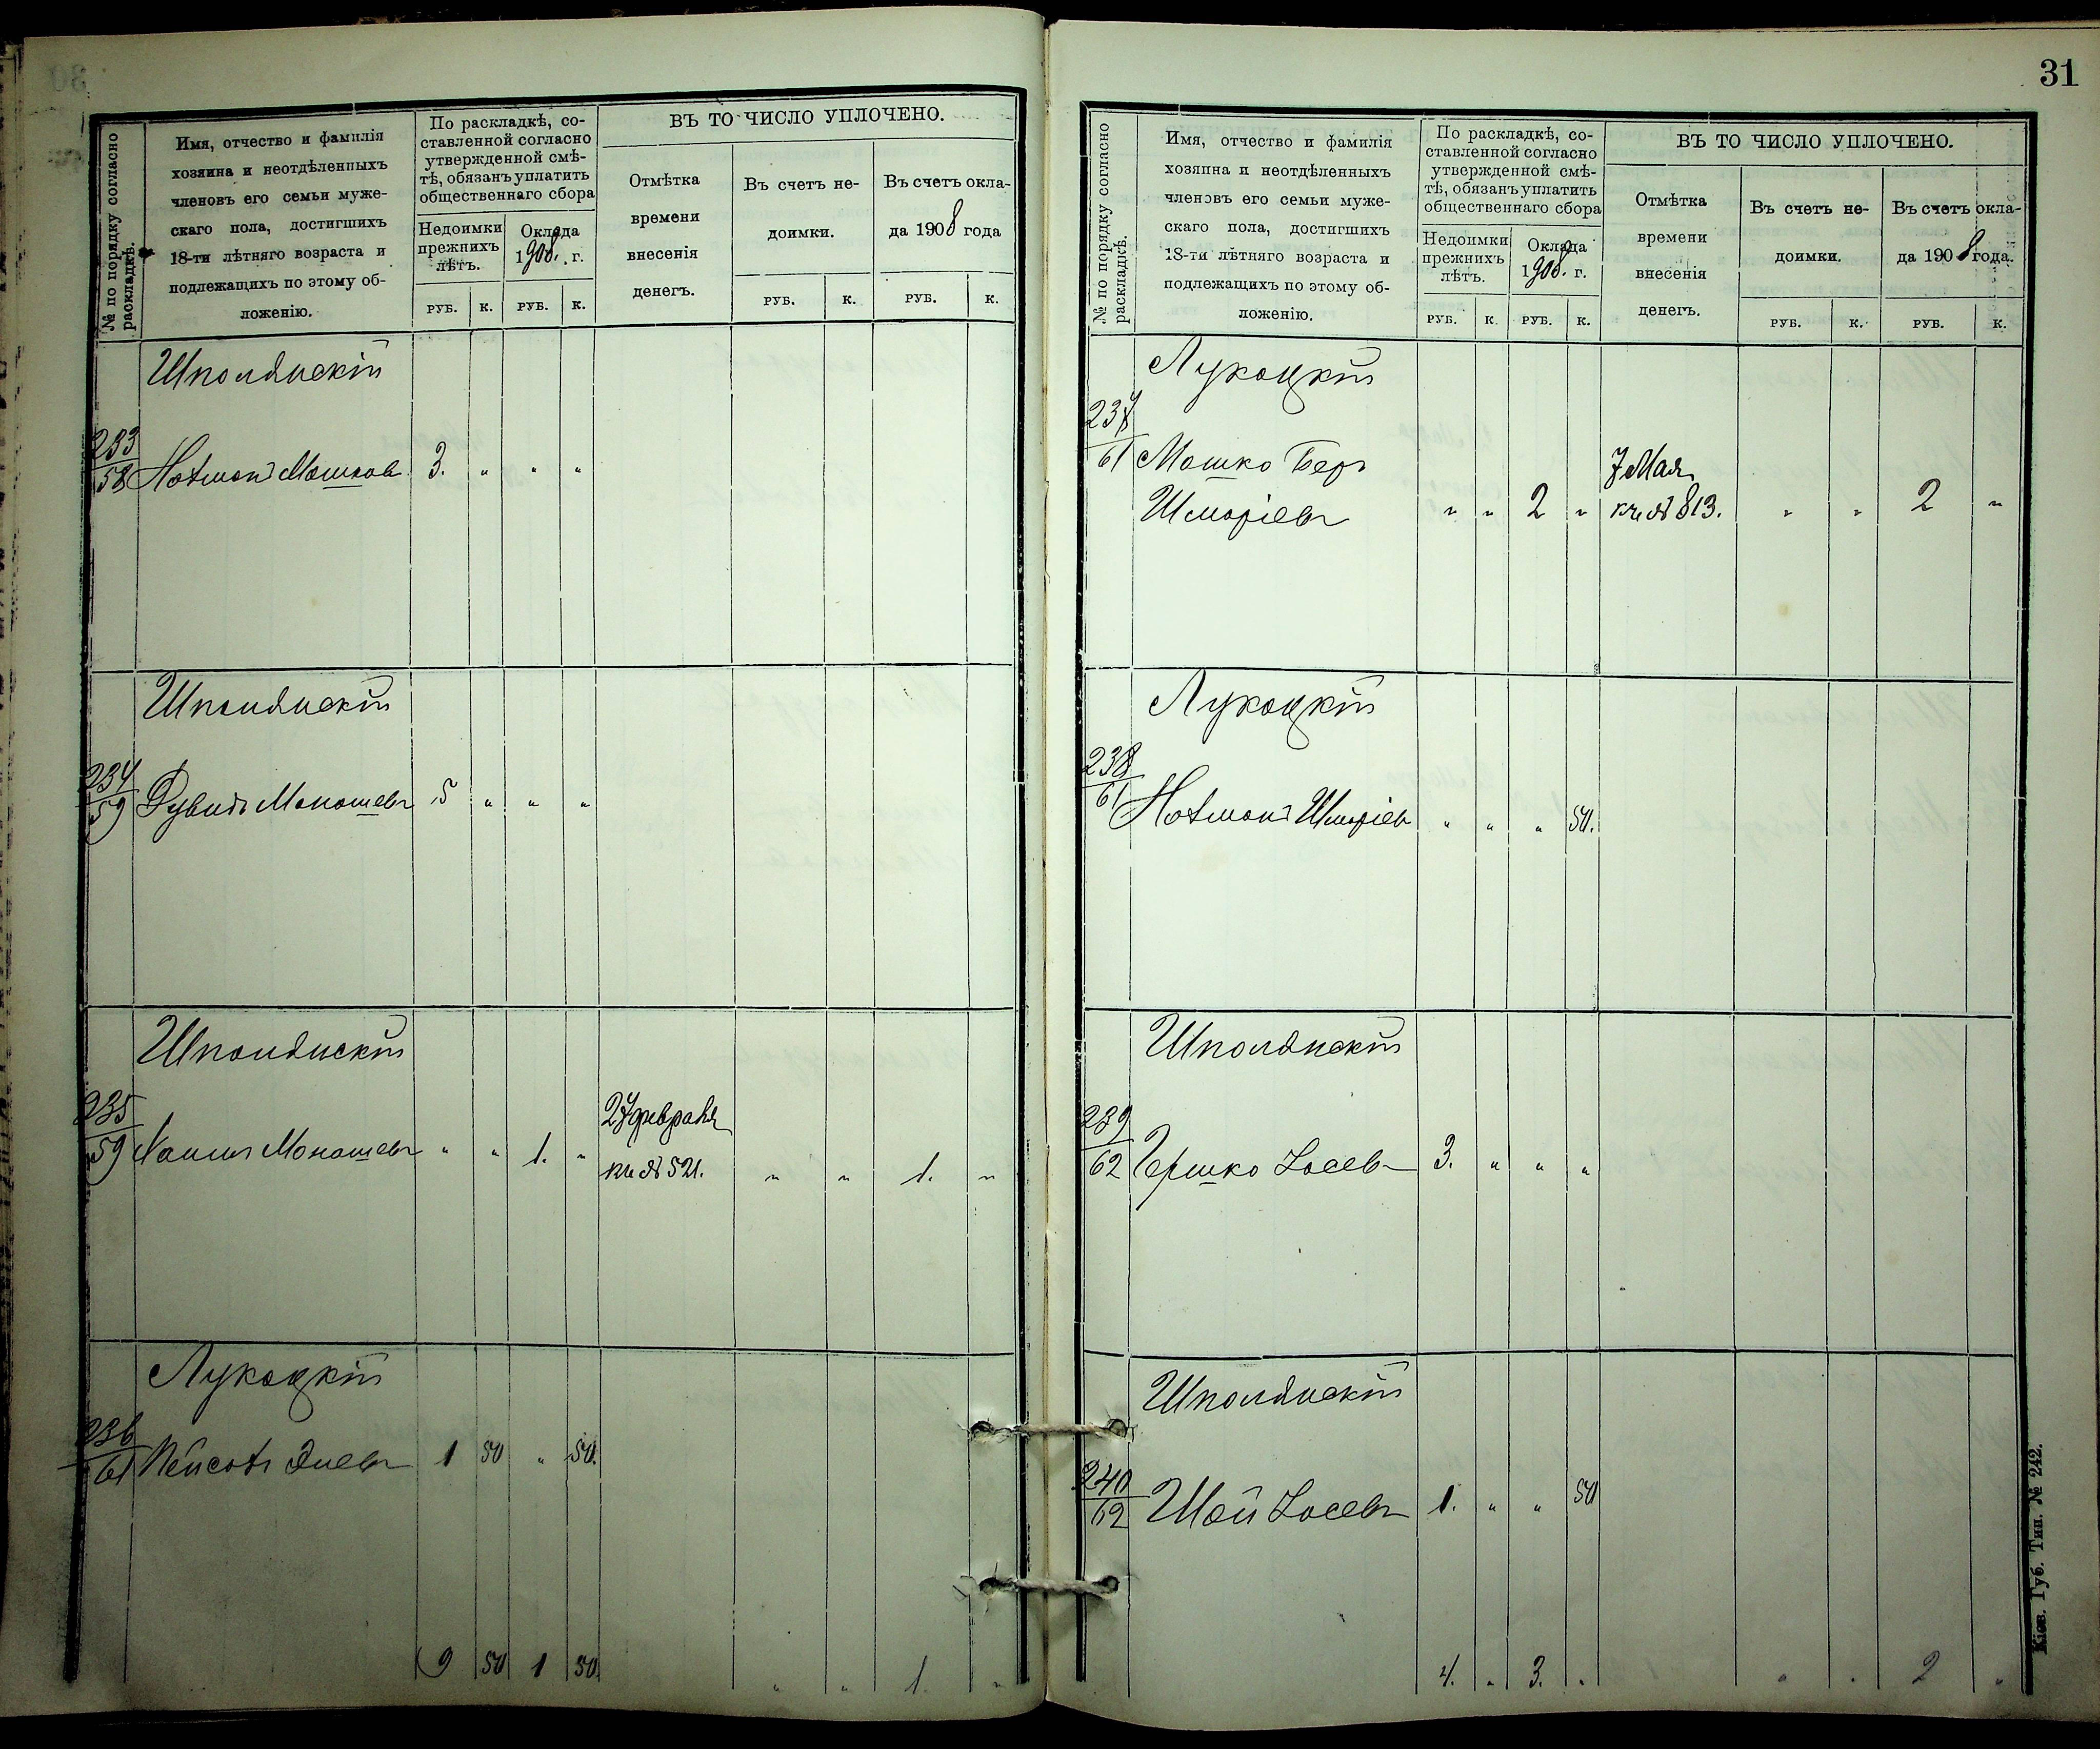 № по порядку согласно раскладкѣ.
Имя, отчество и фамилія
хозяина и неотдѣленныхъ
членовъ его семьи муже-
скаго пола, достигшихъ
18-ти лѣтняго возраста и
подлежащихъ по этому об-
ложенію.
По раскладкѣ, со-
ставленной согласно
утвержденной смѣ-
тѣ, обязанъ уплатить
общественнаго сбора
Недоимки
прежнихъ
лѣтъ.
Оклада
1908. г.
РУБ. К. РУБ. К.
ВЪ ТО ЧИСЛО УПЛОЧЕНО.
Отмѣтка
времени
внесенія
денегъ.
Въ счетъ не-
доимки.
Въ счетъ окла-
да 1908 года
РУБ. К. РУБ. К.
Шполянскій
233
58 Нотмонъ Мошков 3. " " "
Шполянскій
234
59 Рувинъ Моношевъ 5 " " "
Шполянскій
235 27 февраля
59 Хаимъ Моношевъ " " 1. " кв № 521. " " 1. "
Лукацкій
236
61 Пейсохъ Элевъ 1 50 " 50.
9 50 1 50 " " 1. "
31
№ по порядку согласно раскладкѣ.
Имя, отчество и фамилія
хозяина и неотдѣленныхъ
членовъ его семьи муже-
скаго пола, достигшихъ
18-ти лѣтняго возраста и
подлежащихъ по этому об-
ложенію.
По раскладкѣ, со-
ставленной согласно
утвержденной смѣ-
тѣ, обязанъ уплатить
общественнаго сбора
Недоимки
прежнихъ
лѣтъ.
Оклада
1908. г.
РУБ. К. РУБ. К.
ВЪ ТО ЧИСЛО УПЛОЧЕНО.
Отмѣтка
времени
внесенія
денегъ.
Въ счетъ не-
доимки.
Въ счетъ окла-
да 1908 года.
РУБ. К. РУБ. К.
Лукацкій
237
61 Мошко Беръ 7 Мая
Шморіевъ " " 2 " кв № 813. " " 2 "
Лукацкій
238
61 Нотмонъ Шморіев " " " 50.
Шполянскій
239
62 Гершко Іосев 3. " " "
Шполянскій
240
62 Шой Іосевъ 1. " " 50
4. " 3. " " " 2 "
Кіев. Губ. Тип. № 242.